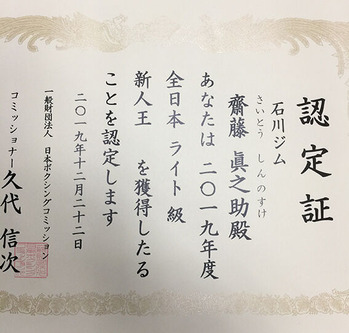 認定証
石川ジム
さいとう しんのすけ
齋藤 眞之助殿
あなたは 二〇一九年度
全日本 ライト級
新人王 を獲得したる
ことを認定します
二〇一九年十二月二十二日
一般財団法人 日本ボクシングコミッション
コミッショナー 久代 信次